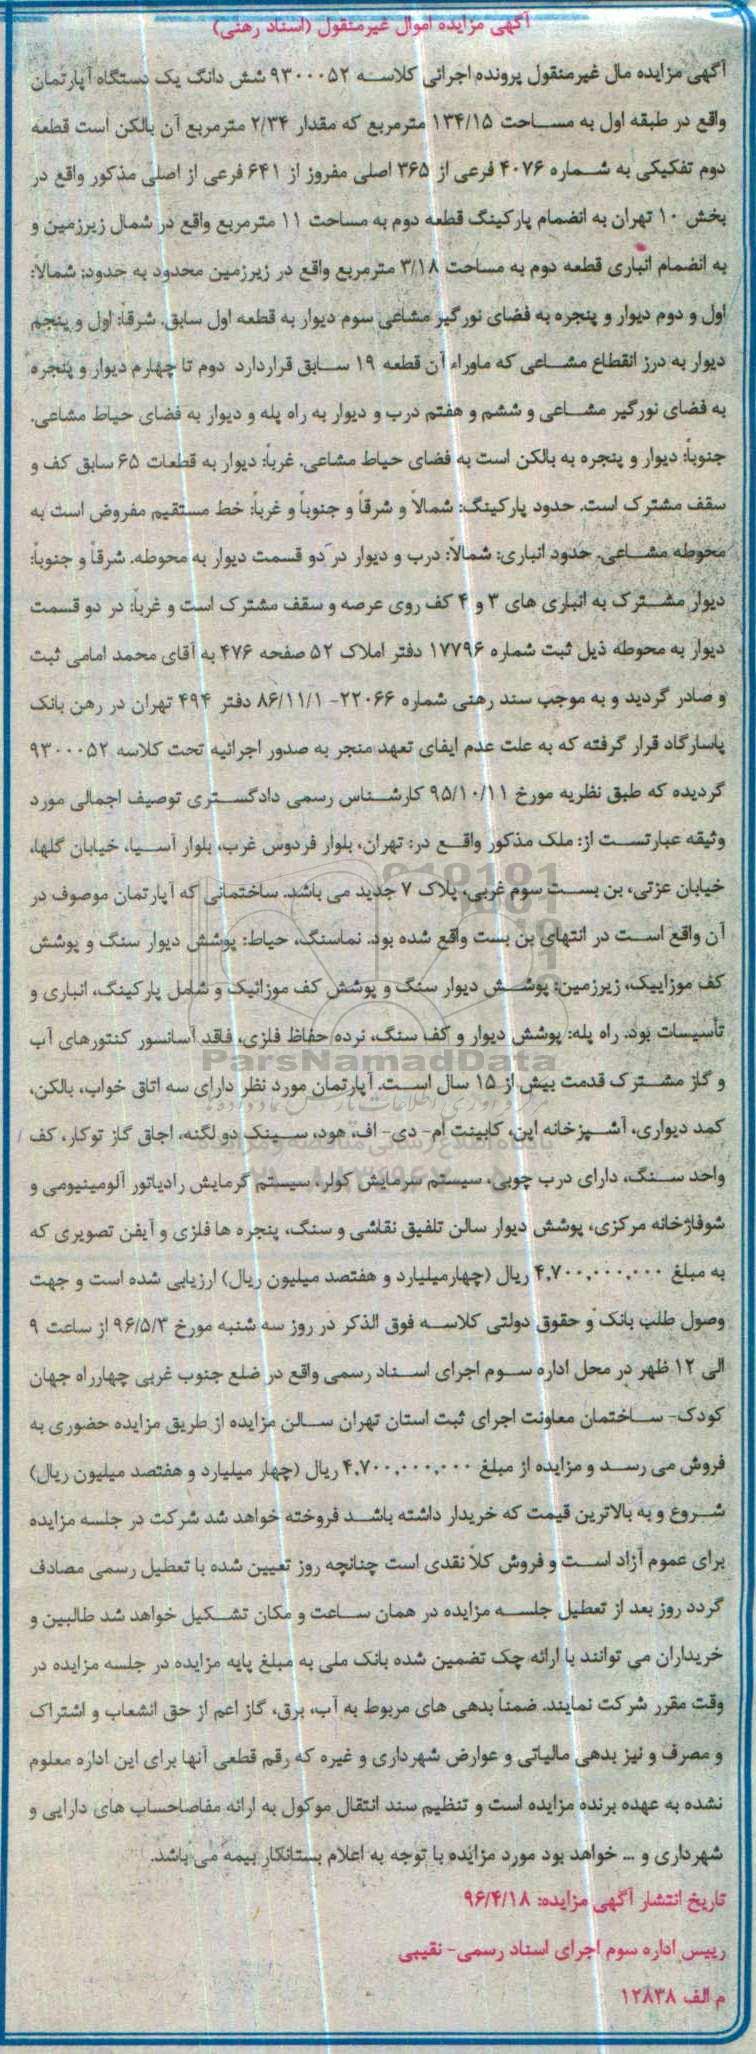 آگهی مزایده اموال غیرمنقول (اسناد رهنی)
آگهی مزایده مال غیرمنقول پرونده اجرائی کلاسه ۹۳۰۰۰۵۲ شش دانگ یک دستگاه آپارتمان
واقع در طبقه اول به مساحت ۱۳۴/۱۵ مترمربع که مقدار ۲/۳۴ مترمربع آن بالکن است قطعه
دوم تفکیکی به شماره ۴۰۷۶ فرعی از ۳۶۵ اصلی مفروز از ۶۴۱ فرعی از اصلی مذکور واقع در
بخش ۱۰ تهران به انضمام پارکینگ قطعه دوم به مساحت ۱۱ مترمربع واقع در شمال زیرزمین و
به انضمام انباری قطعه دوم به مساحت ۳/۱۸ مترمربع واقع در زیرزمین محدود به حدود: شمالاً:
اول و دوم دیوار و پنجره به فضای نورگیر مشاعی سوم دیوار به قطعه اول سابق. شرقاً: اول و پنجم
دیوار به درز انقطاع مشاعی که ماوراء آن قطعه ۱۹ سابق قراردارد دوم تا چهارم دیوار و پنجره
به فضای نورگیر مشاعی و ششم و هفتم درب و دیوار به راه پله و دیوار به فضای حیاط مشاعی.
جنوباً: دیوار و پنجره به بالکن است به فضای حیاط مشاعی. غرباً: دیوار به قطعات ۶۵ سابق کف و
سقف مشترک است. حدود پارکینگ: شمالاً و شرقاً و جنوباً و غرباً: خط مستقیم مفروض است به
محوطه مشاعی. حدود انباری: شمالاً: درب و دیوار در دو قسمت دیوار به محوطه. شرقاً و جنوباً:
دیوار مشترک به انباری های ۳ و ۴ کف روی عرصه و سقف مشترک است و غرباً: در دو قسمت
دیوار به محوطه ذیل ثبت شماره ۱۷۷۹۶ دفتر املاک ۵۲ صفحه ۴۷۶ به آقای محمد امامی ثبت
و صادر گردید و به موجب سند رهنی شماره ۲۲۰۶۶- ۸۶/۱۱/۱ دفتر ۴۹۴ تهران در رهن بانک
پاسارگاد قرار گرفته که به علت عدم ایفای تعهد منجر به صدور اجرائیه تحت کلاسه ۹۳۰۰۰۵۲
گردیده که طبق نظریه مورخ ۹۵/۱۰/۱۱ کارشناس رسمی دادگستری توصیف اجمالی مورد
وثیقه عبارتست از: ملک مذکور واقع در: تهران، بلوار فردوس غرب، بلوار آسیا، خیابان گلها،
خیابان عزتی، بن بست سوم غربی، پلاک ۷ جدید می باشد. ساختمانی که آپارتمان موصوف در
آن واقع است در انتهای بن بست واقع شده بود. نماسنگ، حیاط: پوشش دیوار سنگ و پوشش
کف موزاییک، زیرزمین: پوشش دیوار سنگ و پوشش کف موزائیک و شامل پارکینگ، انباری و
تأسیسات بود. راه پله: پوشش دیوار و کف سنگ، نرده حفاظ فلزی، فاقد آسانسور کنتورهای آب
ParsNamadData
و گاز مشترک قدمت بیش از ۱۵ سال است. آپارتمان مورد نظر دارای سه اتاق خواب، بالکن،
کمد دیواری، آشپزخانه اپن، کابینت ام- دی- اف، هود، سینک دو لگنه، اجاق گاز توکار، کف
واحد سنگ، دارای درب چوبی، سیستم سرمایش کولر، سیستم گرمایش رادیاتور آلومینیومی و
شوفاژخانه مرکزی، پوشش دیوار سالن تلفیق نقاشی و سنگ، پنجره ها فلزی و آیفن تصویری که
به مبلغ ۴,۷۰۰,۰۰۰,۰۰۰ ریال (چهارمیلیارد و هفتصد میلیون ریال) ارزیابی شده است و جهت
وصول طلب بانک و حقوق دولتی کلاسه فوق الذکر در روز سه شنبه مورخ ۹۶/۵/۳ از ساعت ۹
الی ۱۲ ظهر در محل اداره سوم اجرای اسناد رسمی واقع در ضلع جنوب غربی چهارراه جهان
کودک- ساختمان معاونت اجرای ثبت استان تهران سالن مزایده از طریق مزایده حضوری به
فروش می رسد و مزایده از مبلغ ۴,۷۰۰,۰۰۰,۰۰۰ ریال (چهار میلیارد و هفتصد میلیون ریال)
شروع و به بالاترین قیمت که خریدار داشته باشد فروخته خواهد شد شرکت در جلسه مزایده
برای عموم آزاد است و فروش کلاً نقدی است چنانچه روز تعیین شده با تعطیل رسمی مصادف
گردد روز بعد از تعطیل جلسه مزایده در همان ساعت و مکان تشکیل خواهد شد طالبین و
خریداران می توانند با ارائه چک تضمین شده بانک ملی به مبلغ پایه مزایده در جلسه مزایده در
وقت مقرر شرکت نمایند. ضمناً بدهی های مربوط به آب، برق، گاز اعم از حق انشعاب و اشتراک
و مصرف و نیز بدهی مالیاتی و عوارض شهرداری و غیره که رقم قطعی آنها برای این اداره معلوم
نشده به عهده برنده مزایده است و تنظیم سند انتقال موکول به ارائه مفاصاحساب های دارایی و
شهرداری و ... خواهد بود مورد مزایده با توجه به اعلام بستانکار بیمه می باشد.
تاریخ انتشار آگهی مزایده: ۹۶/۴/۱۸
رییس اداره سوم اجرای اسناد رسمی- نقیبی
م الف ۱۲۸۳۸